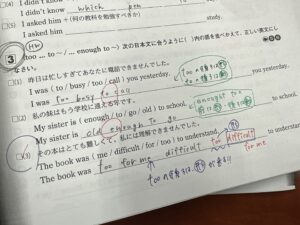 (4) I didn't know which pen
(5) I asked him +(何の教科を勉強すべきか)
I asked him study.
HW
3 too ... to ~ / ... enough to ~〉次の日本文に合うように( )内の語を並べかえて,正しい英文にし
なさい。
(1) 昨日は忙しすぎてあなたに電話できませんでした。
I was ( to / busy / too / call ) you yesterday.
I was too busy to call you yesterday.
(2) 私の妹はもう学校に通える年です。
My sister is ( enough / to / go / old ) to school.
My sister is old enough to go to school.
(3) その本はとても難しくて,私には理解できませんでした。
The book was ( me / difficult / for / too ) to understand.
The book was too for me difficult to understand.
too difficult
for me